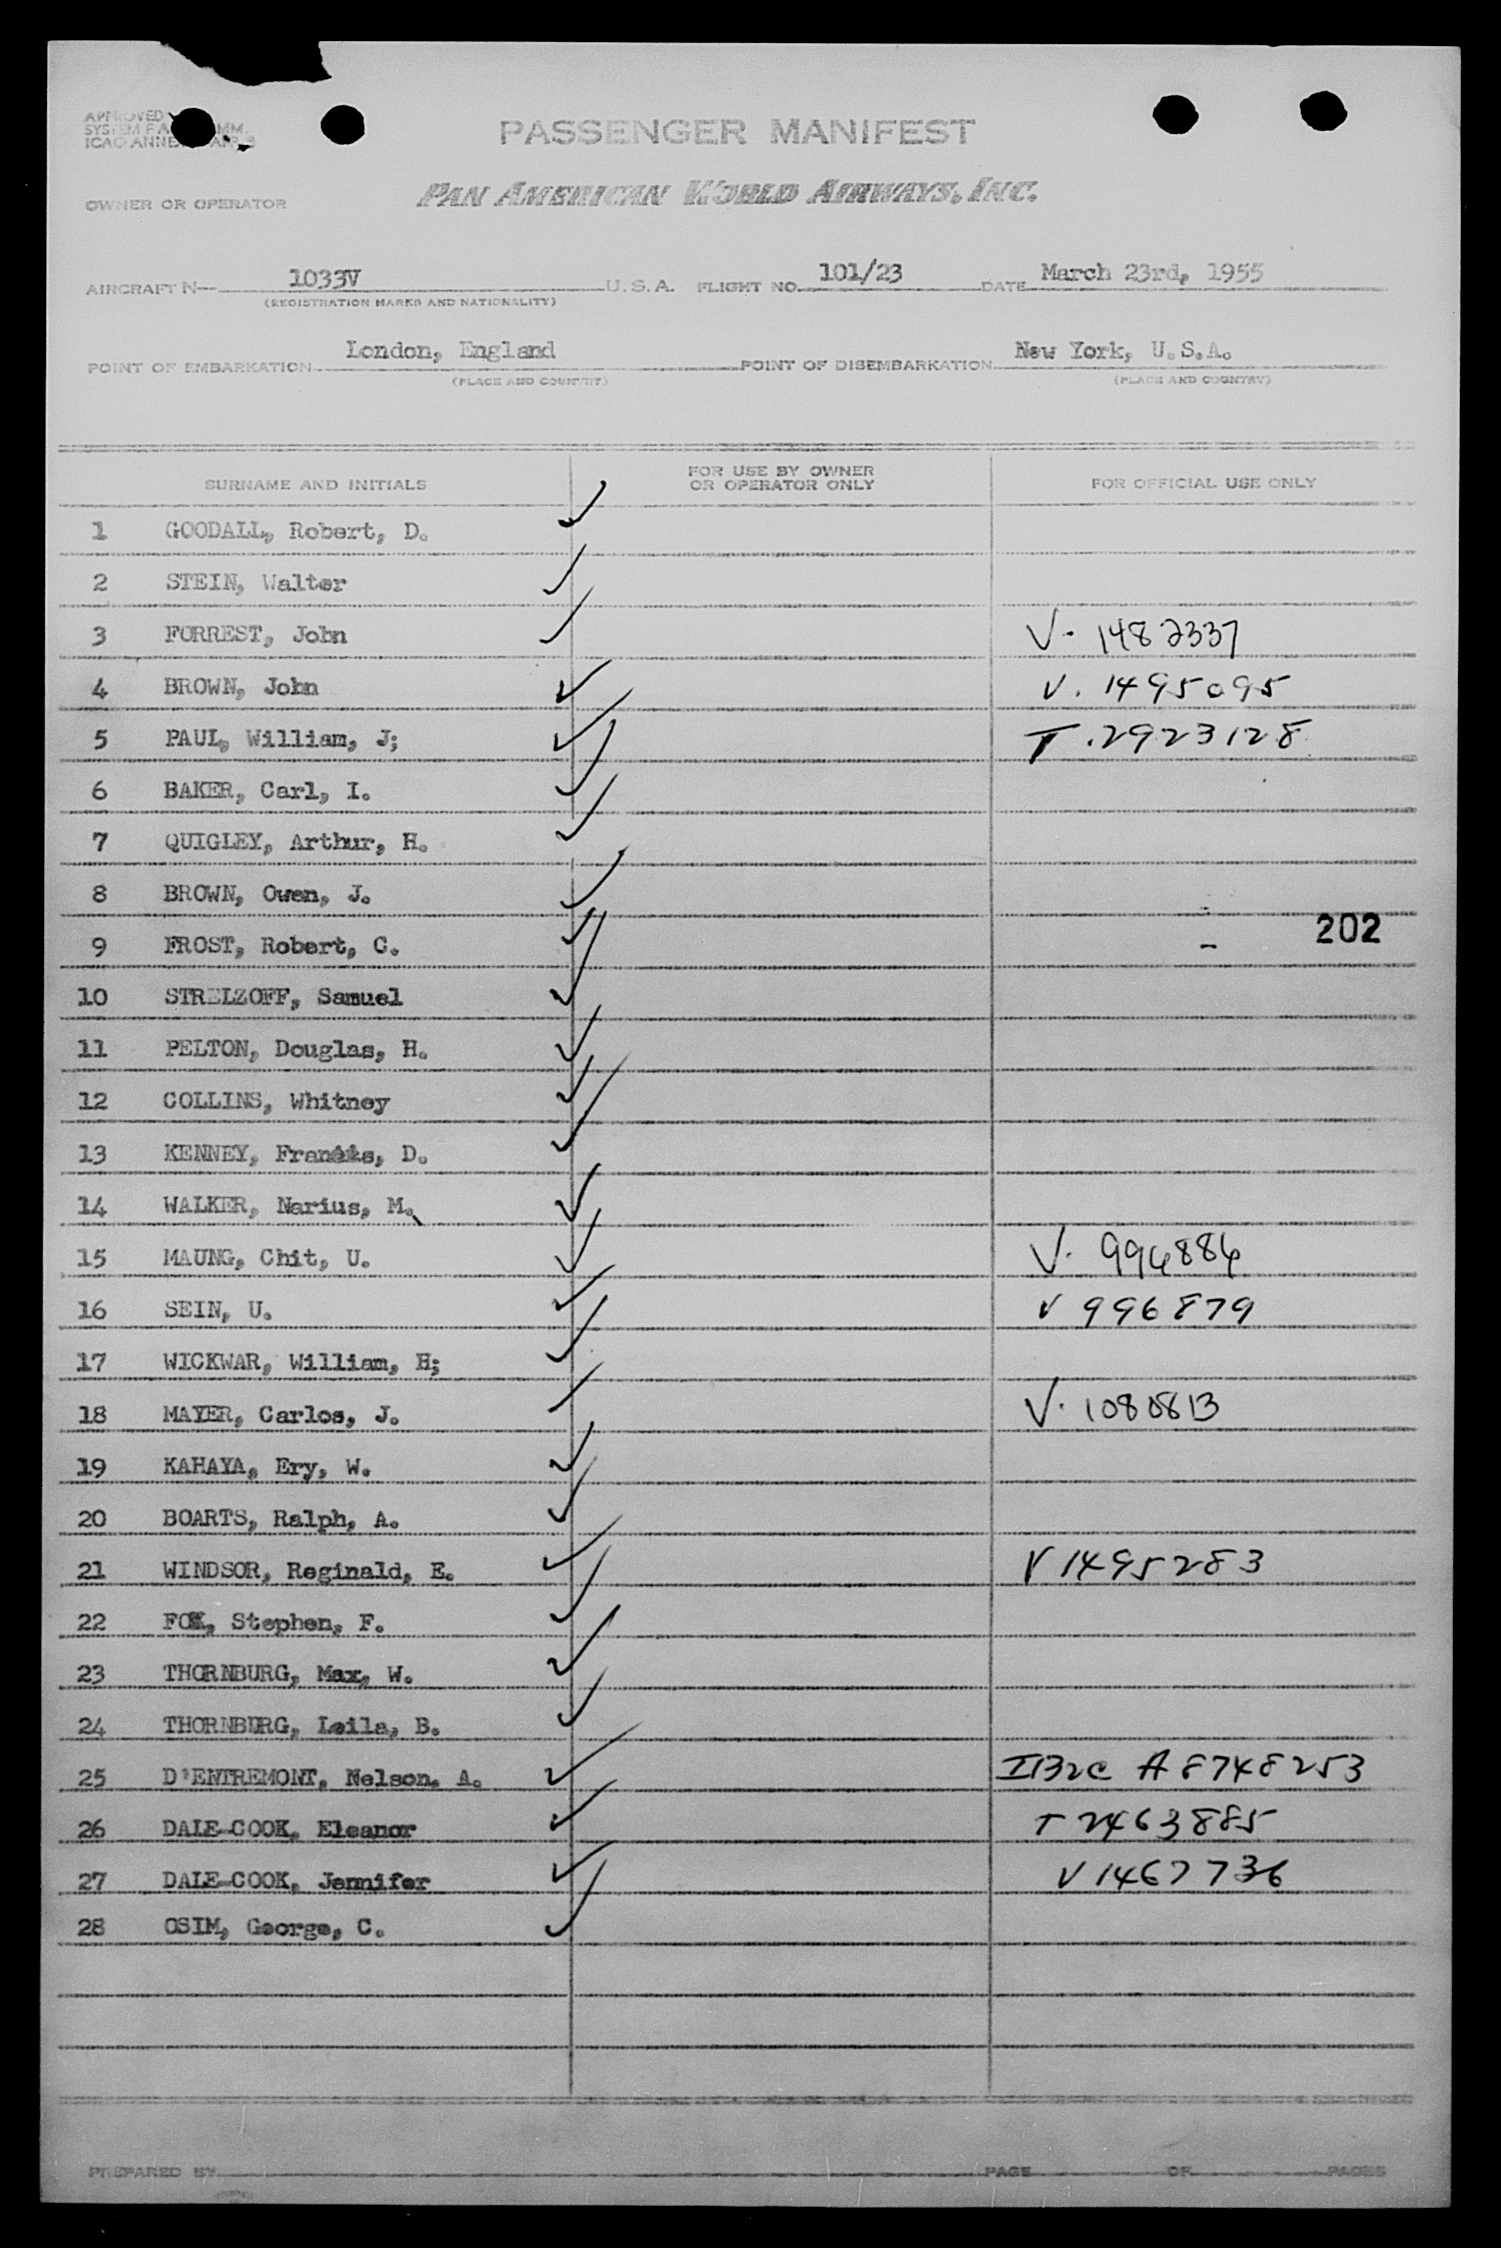 APPROVED
SYSTEM FA MM.
ICAO ANNE
PASSENGER MANIFEST
OWNER OR OPERATOR PAN AMERICAN WORLD AIRWAYS, INC.
AIRCRAFT N- 1033V U.S.A. FLIGHT NO. 101/23 DATE March 23rd, 1955
(REGISTRATION MARKS AND NATIONALITY)
POINT OF EMBARKATION London, England POINT OF DISEMBARKATION New York, U.S.A.
(PLACE AND COUNTRY) (PLACE AND COUNTRY)
SURNAME AND INITIALS FOR USE BY OWNER OR OPERATOR ONLY FOR OFFICIAL USE ONLY
1 GOODALL, Robert, D. ✓
2 STEIN, Walter ✓
3 FORREST, John ✓ V. 1482337
4 BROWN, John ✓ V. 1495095
5 PAUL, William, J; ✓ T. 2923128
6 BAKER, Carl, I. ✓
7 QUIGLEY, Arthur, H. ✓
8 BROWN, Owen, J. ✓
9 FROST, Robert, C. ✓ 202
10 STRELZOFF, Samuel ✓
11 PELTON, Douglas, H. ✓
12 COLLINS, Whitney ✓
13 KENNEY, Francis, D. ✓
14 WALKER, Narius, M. ✓
15 MAUNG, Chit, U. ✓ V. 996886
16 SEIN, U. ✓ V 996879
17 WICKWAR, William, H; ✓
18 MAYER, Carlos, J. ✓ V. 1080813
19 KAHAYA, Ery, W. ✓
20 BOARTS, Ralph, A. ✓
21 WINDSOR, Reginald, E. ✓ V 1495283
22 FOX, Stephen, F. ✓
23 THORNBURG, Max, W. ✓
24 THORNBURG, Leila, B. ✓
25 D'ENTREMONT, Nelson, A. ✓ A 8748253
26 DALE-COOK, Eleanor ✓ T 2463885
27 DALE-COOK, Jennifer ✓ V 1467736
28 OSIM, George, C. ✓
PREPARED BY PAGE OF PAGES